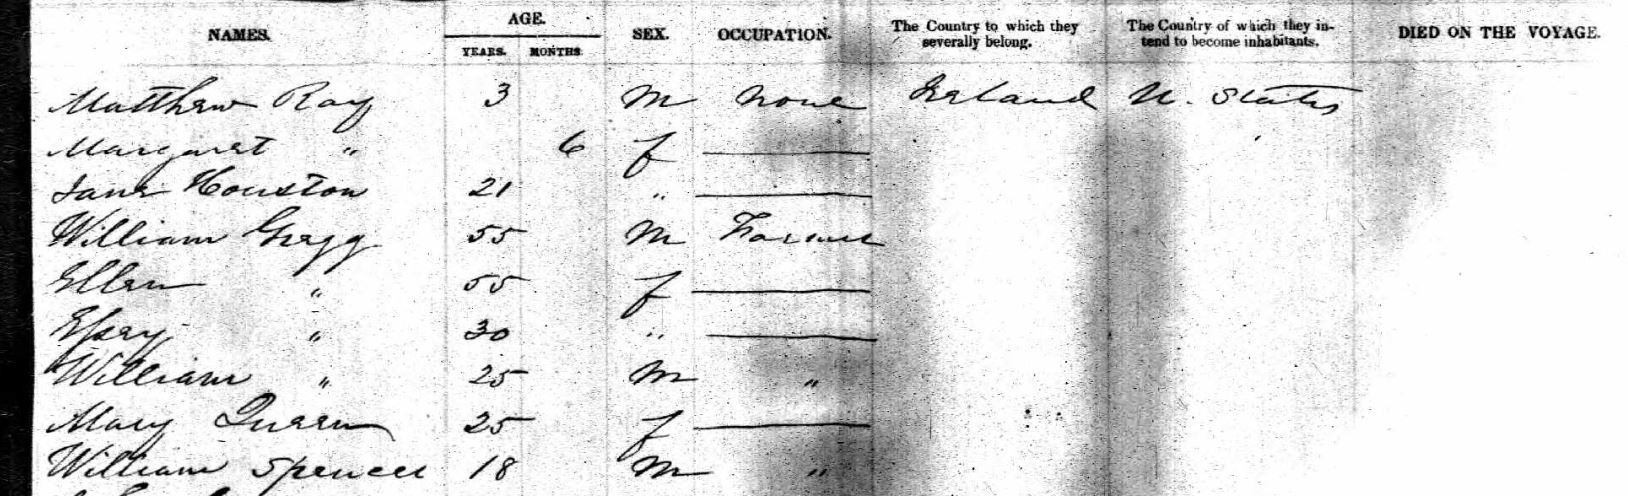 NAMES. AGE. SEX. OCCUPATION. The Country to which they severally belong. The Country of which they intend to become inhabitants. DIED ON THE VOYAGE.
YEARS. MONTHS
Matthew Ray 3 M None Ireland U. States
Margaret " 6 f
Jane Houston 21 "
William Gregg 55 M Farmer
Ellen " 55 f
" 30 "
William " 25 M "
Mary Queen 25 f
William Spencer 18 M "